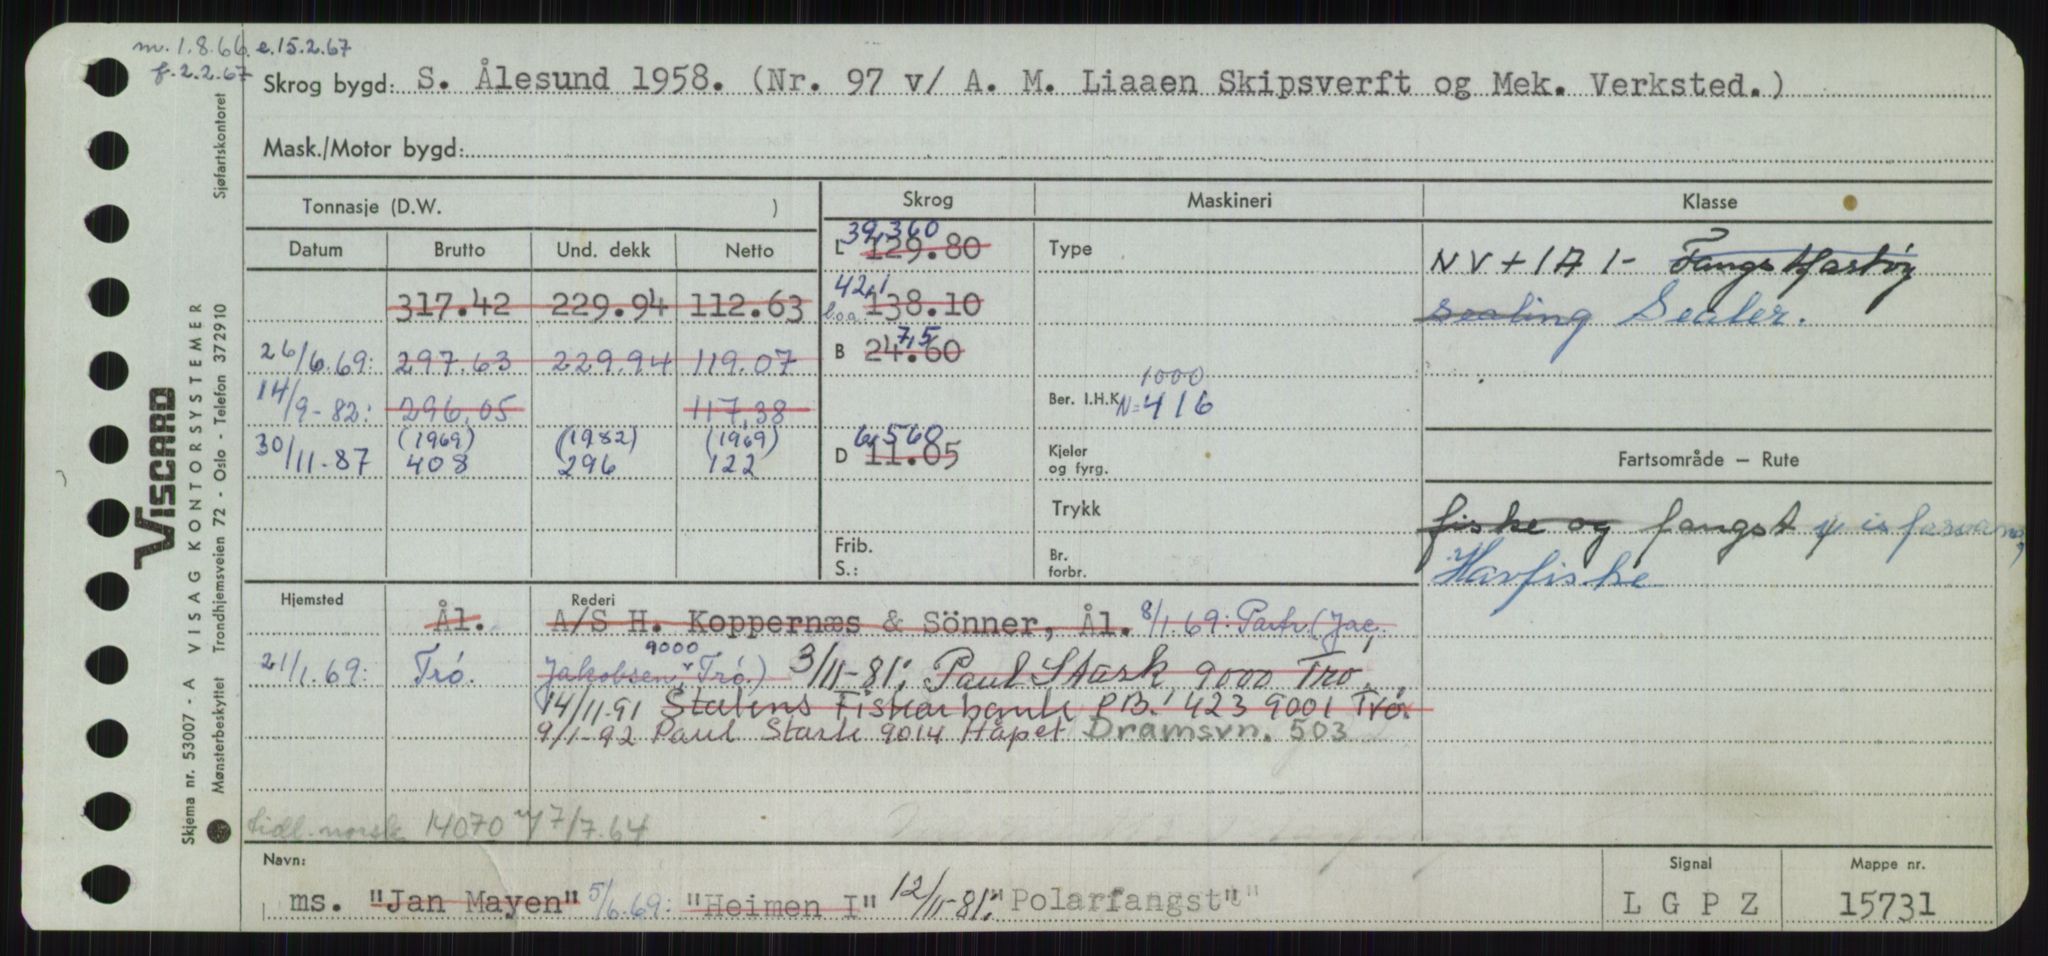 m. 1.8.66 e.15.2.67
f.2.2.67
Skrog bygd: S. Ålesund 1958. (Nr. 97 v/ A. M. Liaaen Skipsverft og Mek. Verksted.)
Mask./Motor bygd:
Tonnasje (D.W. )
Datum Brutto Und. dekk Netto
317.42 229.94 112.63
26/6.69: 297.63 229.94 119.07
14/9-82: 296,05 117,38
(1969) (1982) (1969)
30/11-87 408 296 122
Skrog
39,360
L 129.80
42,1
l.o.a. 138.10
7,5
B 24.60
6,560
D 11.05
Frib.
S.:
Maskineri
Type
1000
Ber. I.H.K. N=416
Kjeler
og fyrg.
Trykk
Br.
forbr.
Klasse
NV+1A1- Fangstfartøy
Sealing Sealer.
Fartsområde – Rute
fiske og fangst isfarvann,
Havfiske
Hjemsted Rederi
Ål. A/S H. Koppernæs & Sönner, Ål. 8/1.69: Partr. (Jac.
9000
21/1.69: Trö. Jakobsen, Trö.) 3/11-81: Paul Stark 9000 Trö.
14/11-91 Statens Fiskarbank P.B. 423 9001 Trö.
9/1-92 Paul Stark 9014 Håpet Dramsvn. 503
tidl. norsk 14070 7/7.64
Navn:
ms. "Jan Mayen" 5/6.69: "Heimen I" 12/11-81: "Polarfangst"
Signal
L G P Z
Mappe nr.
15731
Skjema nr. 53007 - A VISAG KONTORSYSTEMER
Mønsterbeskyttet Trondhjemsveien 72 - Oslo - Telefon 372910 Sjøfartskontoret
VISCARD